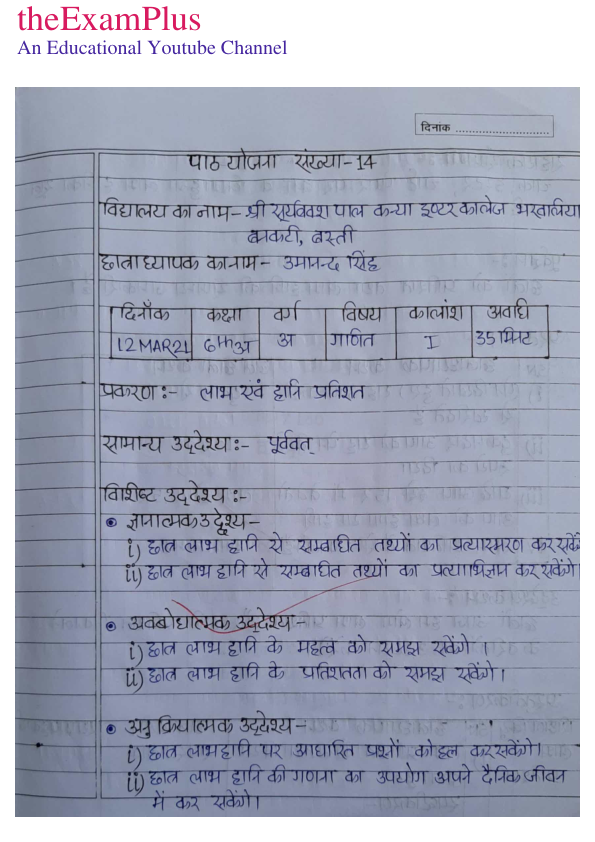 theExamPlus
An Educational Youtube Channel
दिनांक
पाठ योजना संख्या-14
विद्यालय का नाम- श्री सूर्यबवश पाल कन्या इण्टर कालेज भरवलिया
बनकटी, बस्ती
छात्राध्यापक का नाम- उमानन्द सिंह
दिनाँक कक्षा वर्ग विषय कालांश अवधि
12 MAR 21 6th अ अ गणित I 35 मिनट
प्रकरण:- लाभ एवं हानि प्रतिशत
सामान्य उद्देश्य:- पूर्ववत्
विशिष्ट उद्देश्य :-
ज्ञानात्मक उद्देश्य-
i) छात्र लाभ हानि से सम्बन्धित तथ्यों का प्रत्यास्मरण कर सकेंगे
ii) छात्र लाभ हानि से सम्बन्धित तथ्यों का प्रत्याभिज्ञान कर सकेंगे।
अवबोधात्मक उद्देश्य:-
i) छात्र लाभ हानि के महत्व को समझ सकेंगे ।
ii) छात्र लाभ हानि के प्रतिशतता को समझ सकेंगे।
अनु क्रियात्मक उद्देश्य-
i) छात्र लाभ हानि पर आधारित प्रश्नों को हल कर सकेंगे।
ii) छात्र लाभ हानि की गणना का उपयोग अपने दैनिक जीवन
में कर सकेंगे।